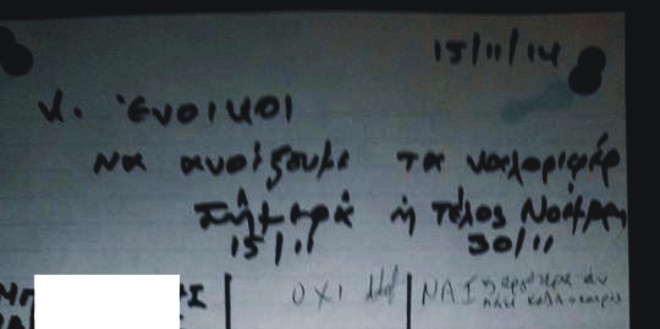 15/11/14
κ. Ένοικοι
να ανοίξουμε τα καλοριφέρ
Σήμερα ή τέλος Νοέμβρη
15/11 30/11
ΟΧΙ ΝΑΙ ή αργότερα αν